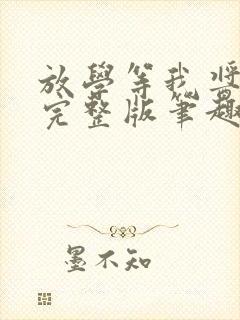 放學等我將
完整版筆趣
墨不知